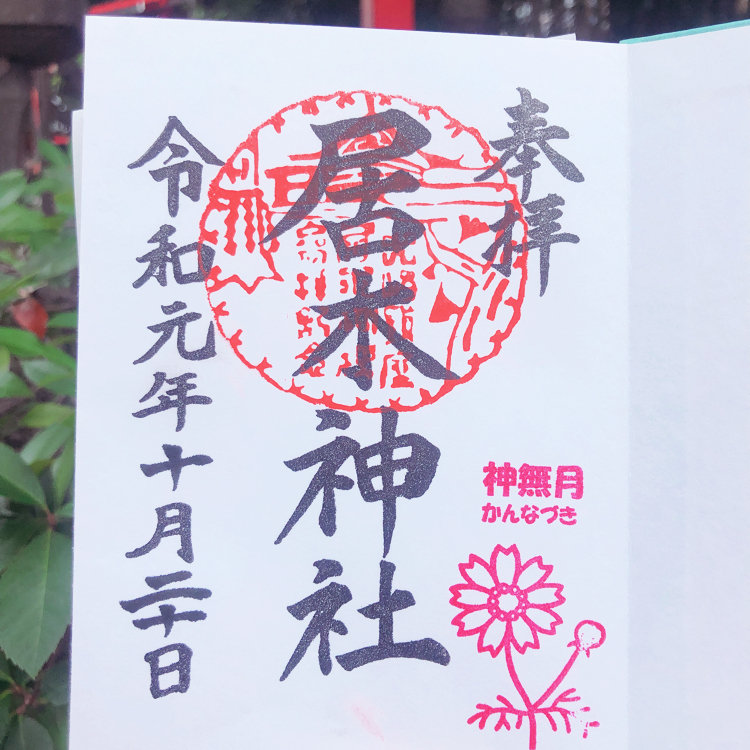 奉拝
居木神社
令和元年十月二十日
神無月
かんなづき